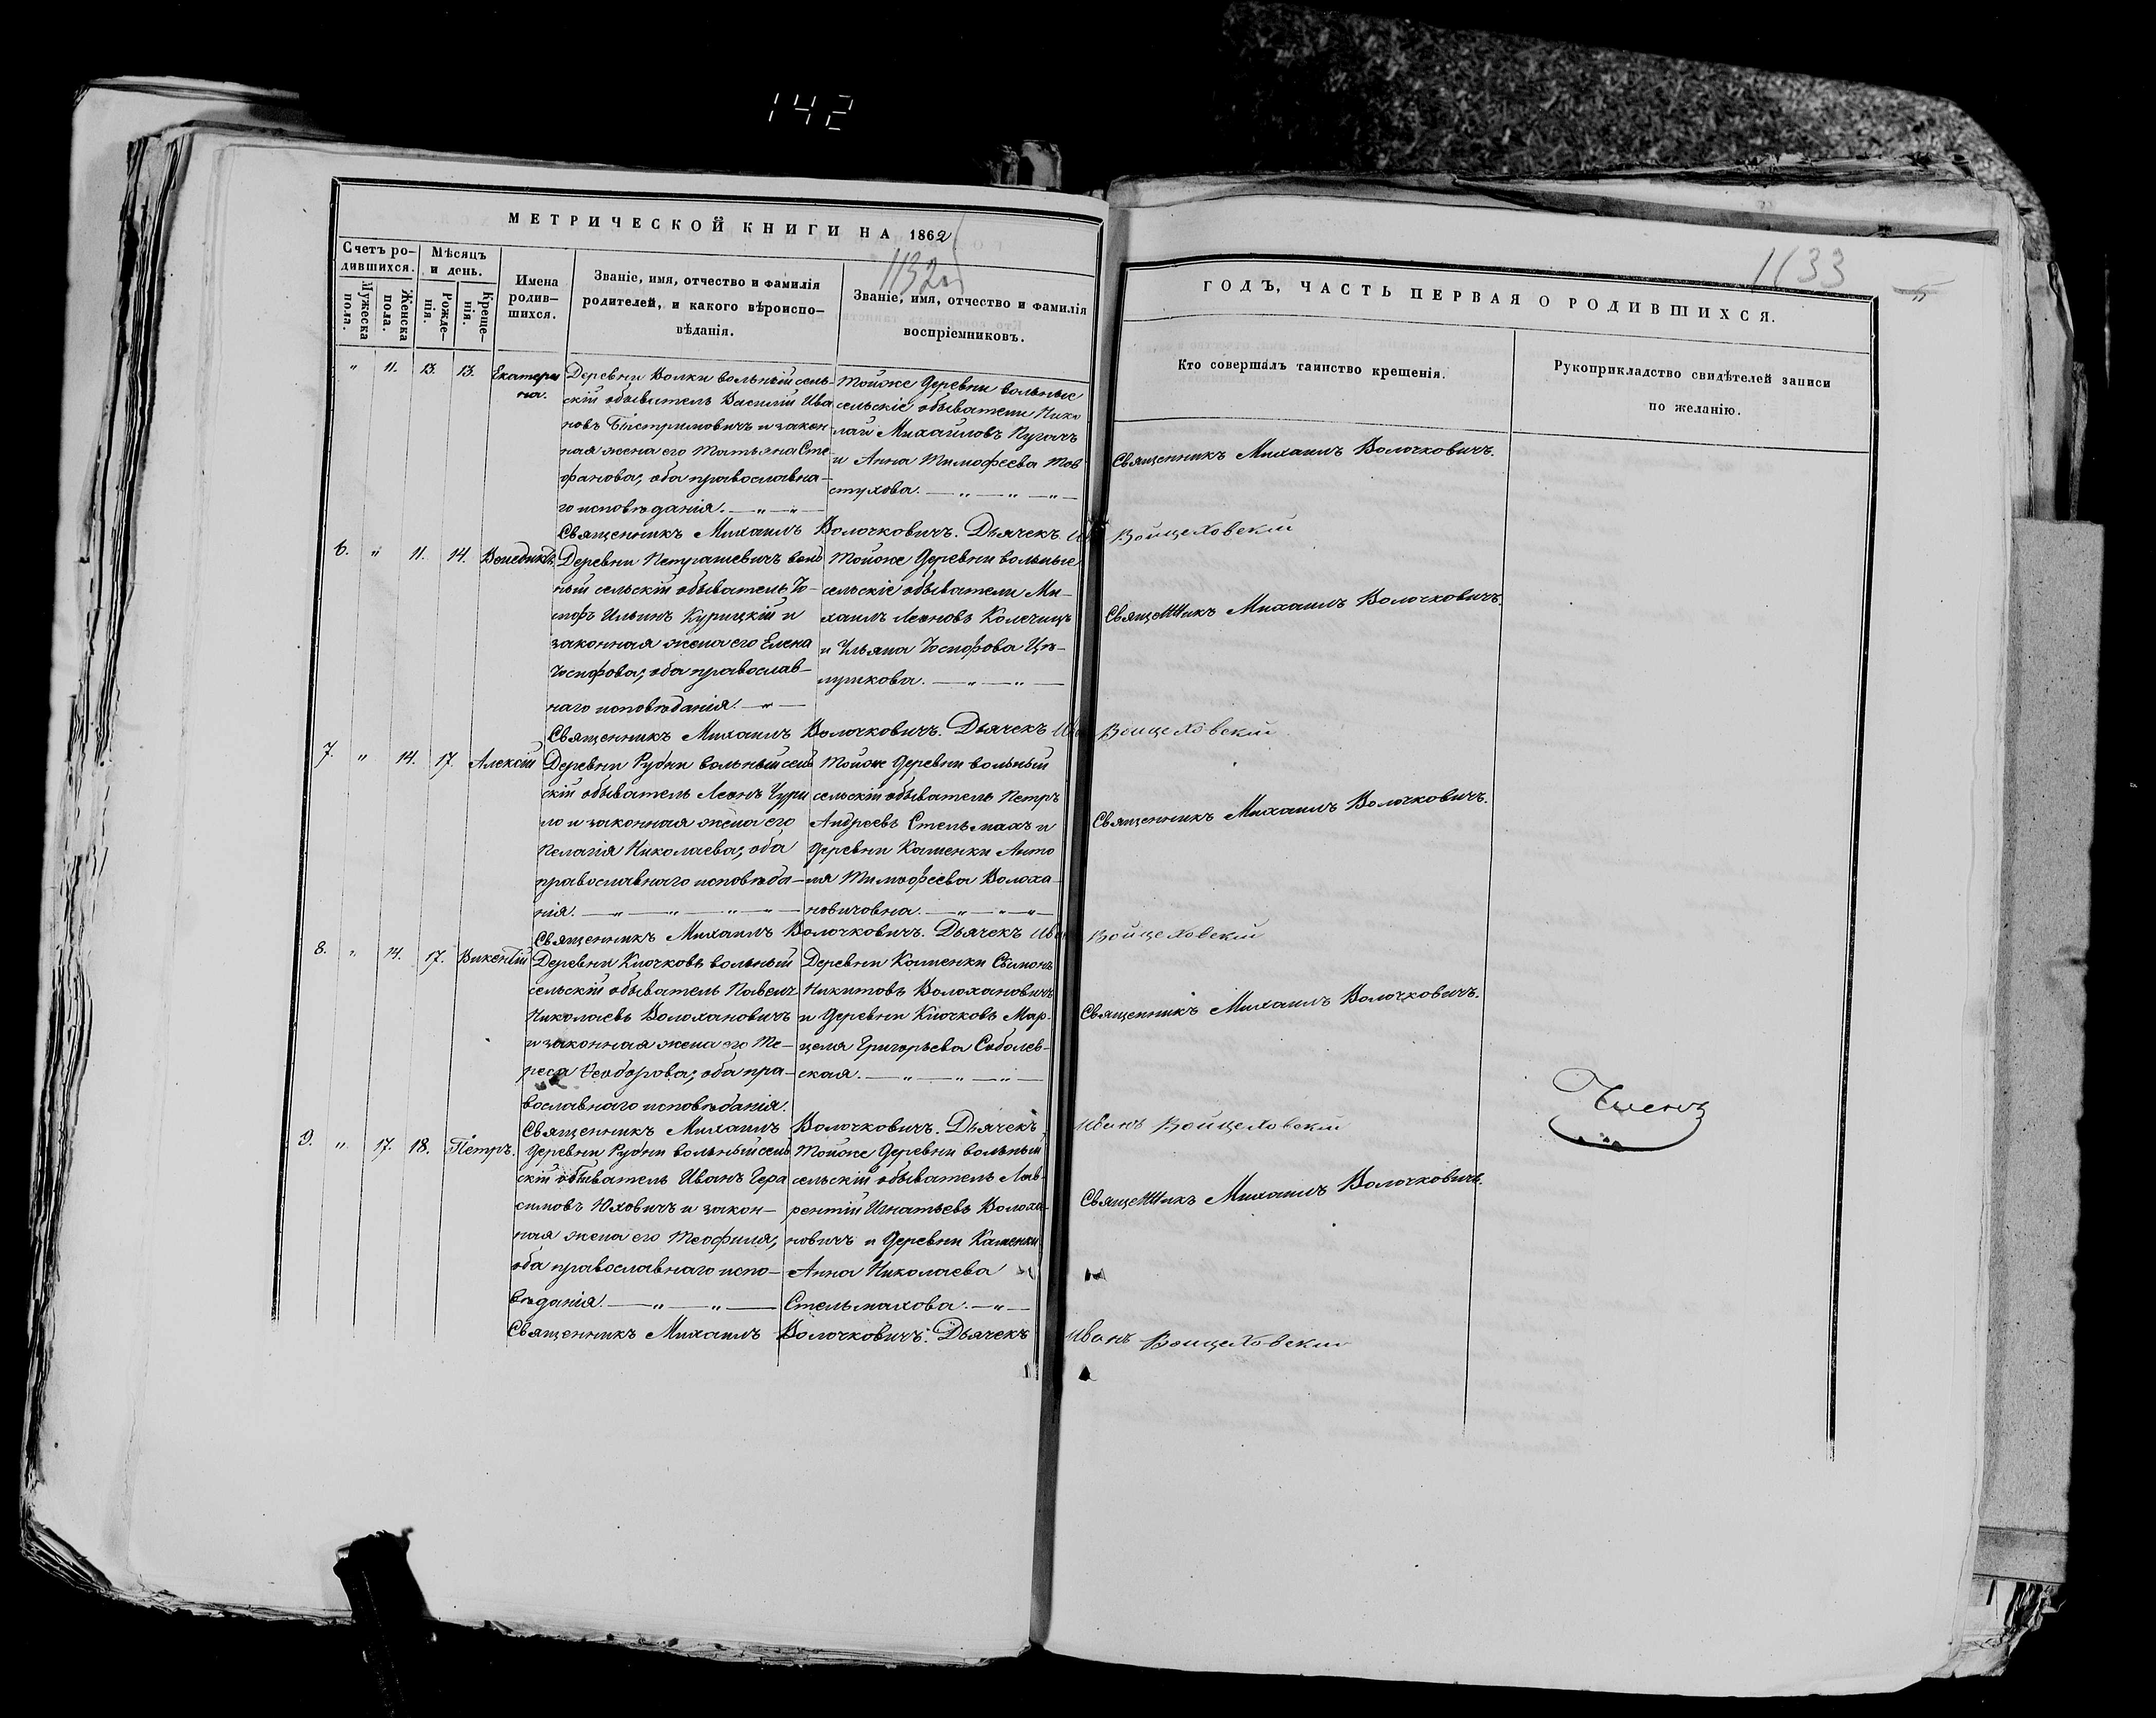 142
МЕТРИЧЕСКОЙ КНИГИ НА 1862
1132об
Счетъ ро-
дившихся.
Мужеска
пола.
Женска
пола.
Мѣсяцъ
и день.
Рожде-
нія.
Креще-
нія.
Имена
родив-
шихся.
Званіе, имя, отчество и фамилія
родителей, и какого вѣроиспо-
вѣданія.
Званіе, имя, отчество и фамилія
воспріемниковъ.
" 11. 13. 13. Екатери
на.
Деревни Волки вольный сель-
скій обыватель Василій Ива
новъ Быстримовичъ и закон-
ная жена его Татьяна Сте-
фанова, оба православна-
го исповѣданія. — " — " —
Тойже деревни вольные
сельскіе обыватели Нико
лай Михайловъ Пугачъ
и Анна Тимофеева Тов
стухова. — " — " — " —
Священникъ Михаилъ Волочковичъ. Дьячекъ Ив
6. " 11. 14. Венедиктъ.
Деревни Петрашевичъ воль
ный сельскій обыватель Іо-
сифъ Ильинъ Курицкій и
законная жена его Елена
Іосифова, оба православ-
наго исповѣданія. — " —
Тойже деревни вольные
сельскіе обыватели Ми-
хаилъ Леоновъ Колечицъ
и Ульяна Іосифова Цѣ-
лушкова. — " — " —
Священникъ Михаилъ Волочковичъ. Дьячекъ Ива
7. " 14. 17. Алексій
Деревни Рудни вольный сель
скій обыватель Леонъ Чури
ло и законная жена его
Пелагія Николаева, оба
православнаго исповѣда-
нія. — " — " — " — " —
Тойже деревни вольный
сельскій обыватель Петръ
Андреевъ Стельмахъ и
деревни Каменки Анто
ля Тимофеева Волоха-
новичовна. — " — " — " —
Священникъ Михаилъ Волочковичъ. Дьячекъ Иван
8. " 14. 17. Викентій
Деревни Клочковъ вольный
сельскій обыватель Павелъ
Николаевъ Волохановичъ
и законная жена его Те-
реса Ѳеодорова, оба пра-
вославнаго исповѣданія.
Деревни Каменки Сымонъ
Никитовъ Волохановичъ
и деревни Клочковъ Мар-
целя Григорьева Соболев-
ская. — " — " — " —
Священникъ Михаилъ Волочковичъ. Дьячекъ
9. " 17. 18. Петръ.
Деревни Рудни вольный сель
скій обыватель Иванъ Гера
симовъ Юховичъ и закон-
ная жена его Теофиля,
оба православнаго испо-
вѣданія. — " — " —
Тойже деревни вольный
сельскій обыватель Лав-
рентій Игнатьевъ Волоха-
новичъ и деревни Каменки
Анна Николаева
Стельмахова. — " —
Священникъ Михаилъ Волочковичъ. Дьячекъ
1133
ГОДЪ, ЧАСТЬ ПЕРВАЯ О РОДИВШИХСЯ.
Кто совершалъ таинство крещенія.
Рукоприкладство свидѣтелей записи
по желанію.
Священникъ Михаилъ Волочковичъ.
Войцеховскій
Священникъ Михаилъ Волочковичъ.
Войцеховскій
Священникъ Михаилъ Волочковичъ.
Войцеховскій
Священникъ Михаилъ Волочковичъ.
Иванъ Войцеховскій
Членъ
Священникъ Михаилъ Волочковичъ.
Иванъ Войцеховскій